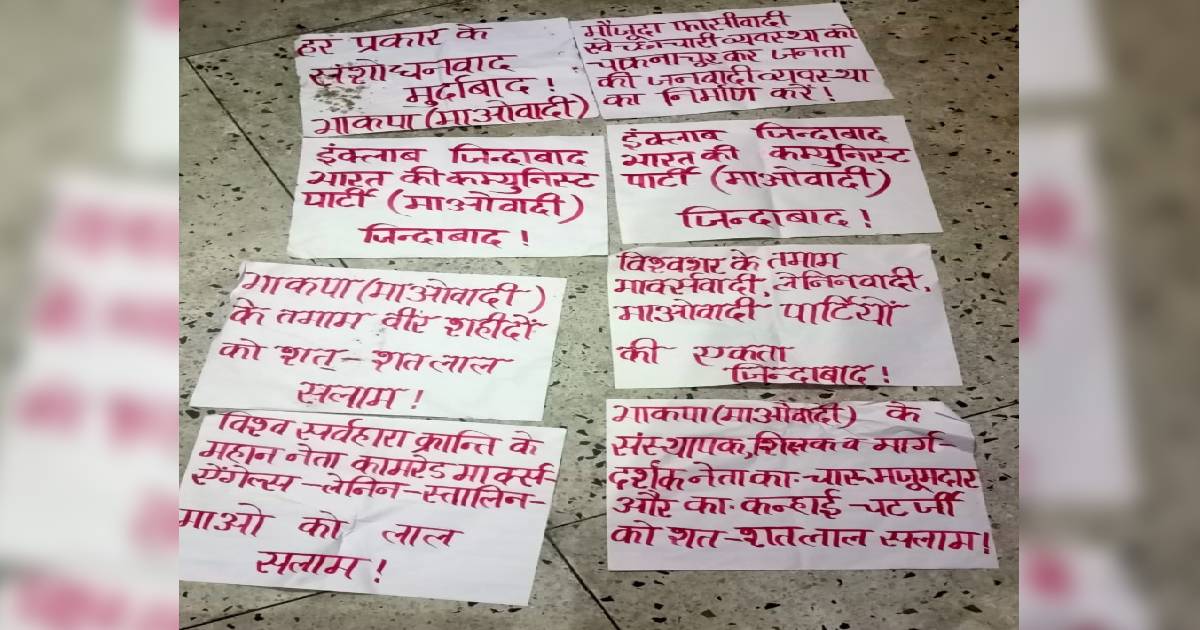 हर प्रकार के
संशोधनवाद
मुर्दाबाद !
भाकपा (माओवादी)
मौजूदा फासीवादी
स्वेच्छाचारी व्यवस्था को
चकनाचुर कर जनता
की जनवादी व्यवस्था
का निर्माण करें !
इंक्लाब जिन्दाबाद
भारत की कम्युनिस्ट
पार्टी (माओवादी)
जिन्दाबाद !
इंक्लाब जिन्दाबाद
भारत की कम्युनिस्ट
पार्टी (माओवादी)
जिन्दाबाद !
भाकपा (माओवादी)
के तमाम वीर शहीदों
को शत्-शत लाल
सलाम !
विश्वभर के तमाम
मार्क्सवादी, लेनिनवादी,
माओवादी पार्टियों
की एकता
जिन्दाबाद !
विश्व सर्वहारा क्रान्ति के
महान नेता कामरेड मार्क्स-
ऐंगेल्स-लेनिन-स्तालिन-
माओ को लाल
सलाम !
भाकपा (माओवादी) के
संस्थापक, शिक्षक व मार्ग-
दर्शक नेता का॰ चारू मजूमदार
और का॰ कन्हाई चटर्जी
को शत-शत लाल सलाम !